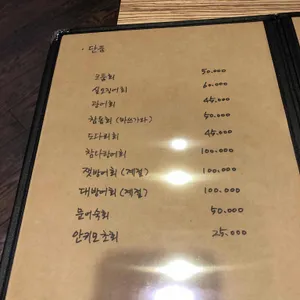 · 단품
모듬회 50.000
실오징어회 60.000
광어회 45.000
참돔회 (마쓰가와) 50.000
도다리회 45.000
참다랑어회 100.000
잿방어회 (계절) 100.000
대방어회 (계절) 100.000
문어숙회 50.000
안키모초회 25.000